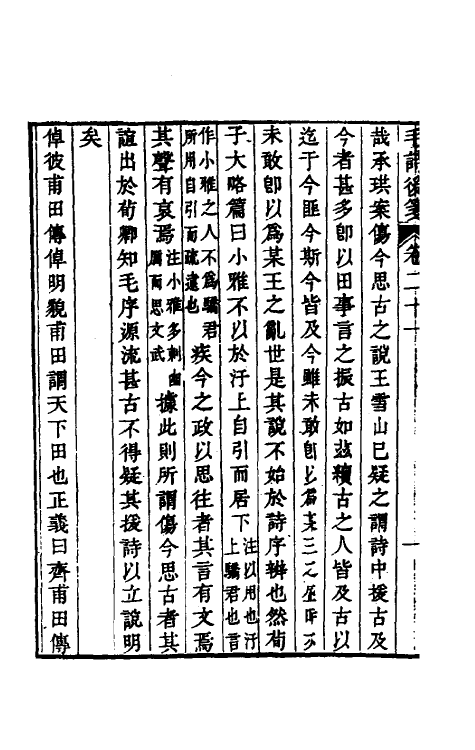 毛詩後箋 卷二十一
哉承珙案傷今思古之說王雪山已疑之謂詩中援古及
今者甚多卽以田事言之振古如茲續古之人皆及古以
迄于今匪今斯今皆及今雖未敢卽以爲某王之
未敢卽以爲某王之亂世是其說不始於詩序辨也然荀
子大略篇曰小雅不以於汙上自引而居下注以用也汙上驕君也言
作小雅之人不爲驕君所用自引而疏遠也疾今之政以思往者其言有文焉
其聲有哀焉注小雅多刺幽厲而思文武據此則所謂傷今思古者其
誼出於荀卿知毛序源流甚古不得疑其援詩以立說明
矣
倬彼甫田傳倬明貌甫田謂天下田也正義曰齊甫田傳